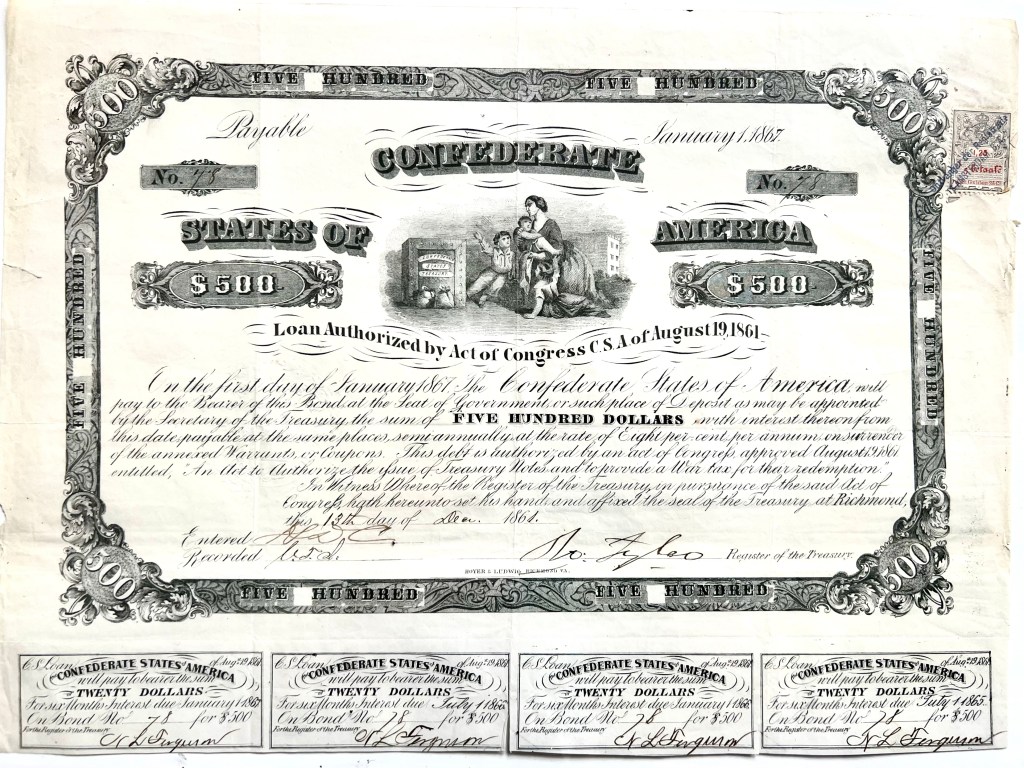 FIVE HUNDRED FIVE HUNDRED
500 500
Payable January 1, 1867.
CONFEDERATE
No. 78 No. 78
STATES OF AMERICA
CONFEDERATE
STATES
TREASURY
$500 $500
FIVE HUNDRED
FIVE HUNDRED
Loan Authorized by Act of Congress C.S.A of August 19, 1861
On the first day of January 1867 The Confederate States of America will
pay to the Bearer of this Bond, at the Seat of Government, or such place of Deposit as may be appointed
by the Secretary of the Treasury, the sum of FIVE HUNDRED DOLLARS with interest thereon from
this date, payable at the same places, semi annually, at the rate of Eight per cent, per annum, on surrender
of the annexed Warrants, or Coupons. This debt is authorized by an act of Congress, approved August 19, 1861
entitled, "An Act to Authorize the issue of Treasury Notes, and to provide a War tax for their redemption."
In Witness Whereof the Register of the Treasury, in pursuance of the said Act of
Congress, hath hereunto set his hand, and affixed the seal of the Treasury at Richmond,
this 13th day of Dec. 1861.
Entered
Recorded
Ro. Tyler Register of the Treasury.
HOYER & LUDWIG, RICHMOND VA.
500 500
FIVE HUNDRED FIVE HUNDRED
C S Loan of Aug. 19, 1861
CONFEDERATE STATES AMERICA
will pay to bearer the sum
TWENTY DOLLARS
For six Months Interest due January 1 1867
On Bond No 78 for $500
For the Register of the Treasury
N L Ferguson
C S Loan of Aug. 19, 1861
CONFEDERATE STATES AMERICA
will pay to bearer the sum
TWENTY DOLLARS
For six Months Interest due July 1 1866
On Bond No 78 for $500
For the Register of the Treasury
N L Ferguson
C S Loan of Aug. 19, 1861
CONFEDERATE STATES AMERICA
will pay to bearer the sum
TWENTY DOLLARS
For six Months Interest due January 1 1866
On Bond No 78 for $500
For the Register of the Treasury
N L Ferguson
C S Loan of Aug. 19, 1861
CONFEDERATE STATES AMERICA
will pay to bearer the sum
TWENTY DOLLARS
For six Months Interest due July 1 1865
On Bond No 78 for $500
For the Register of the Treasury
N L Ferguson